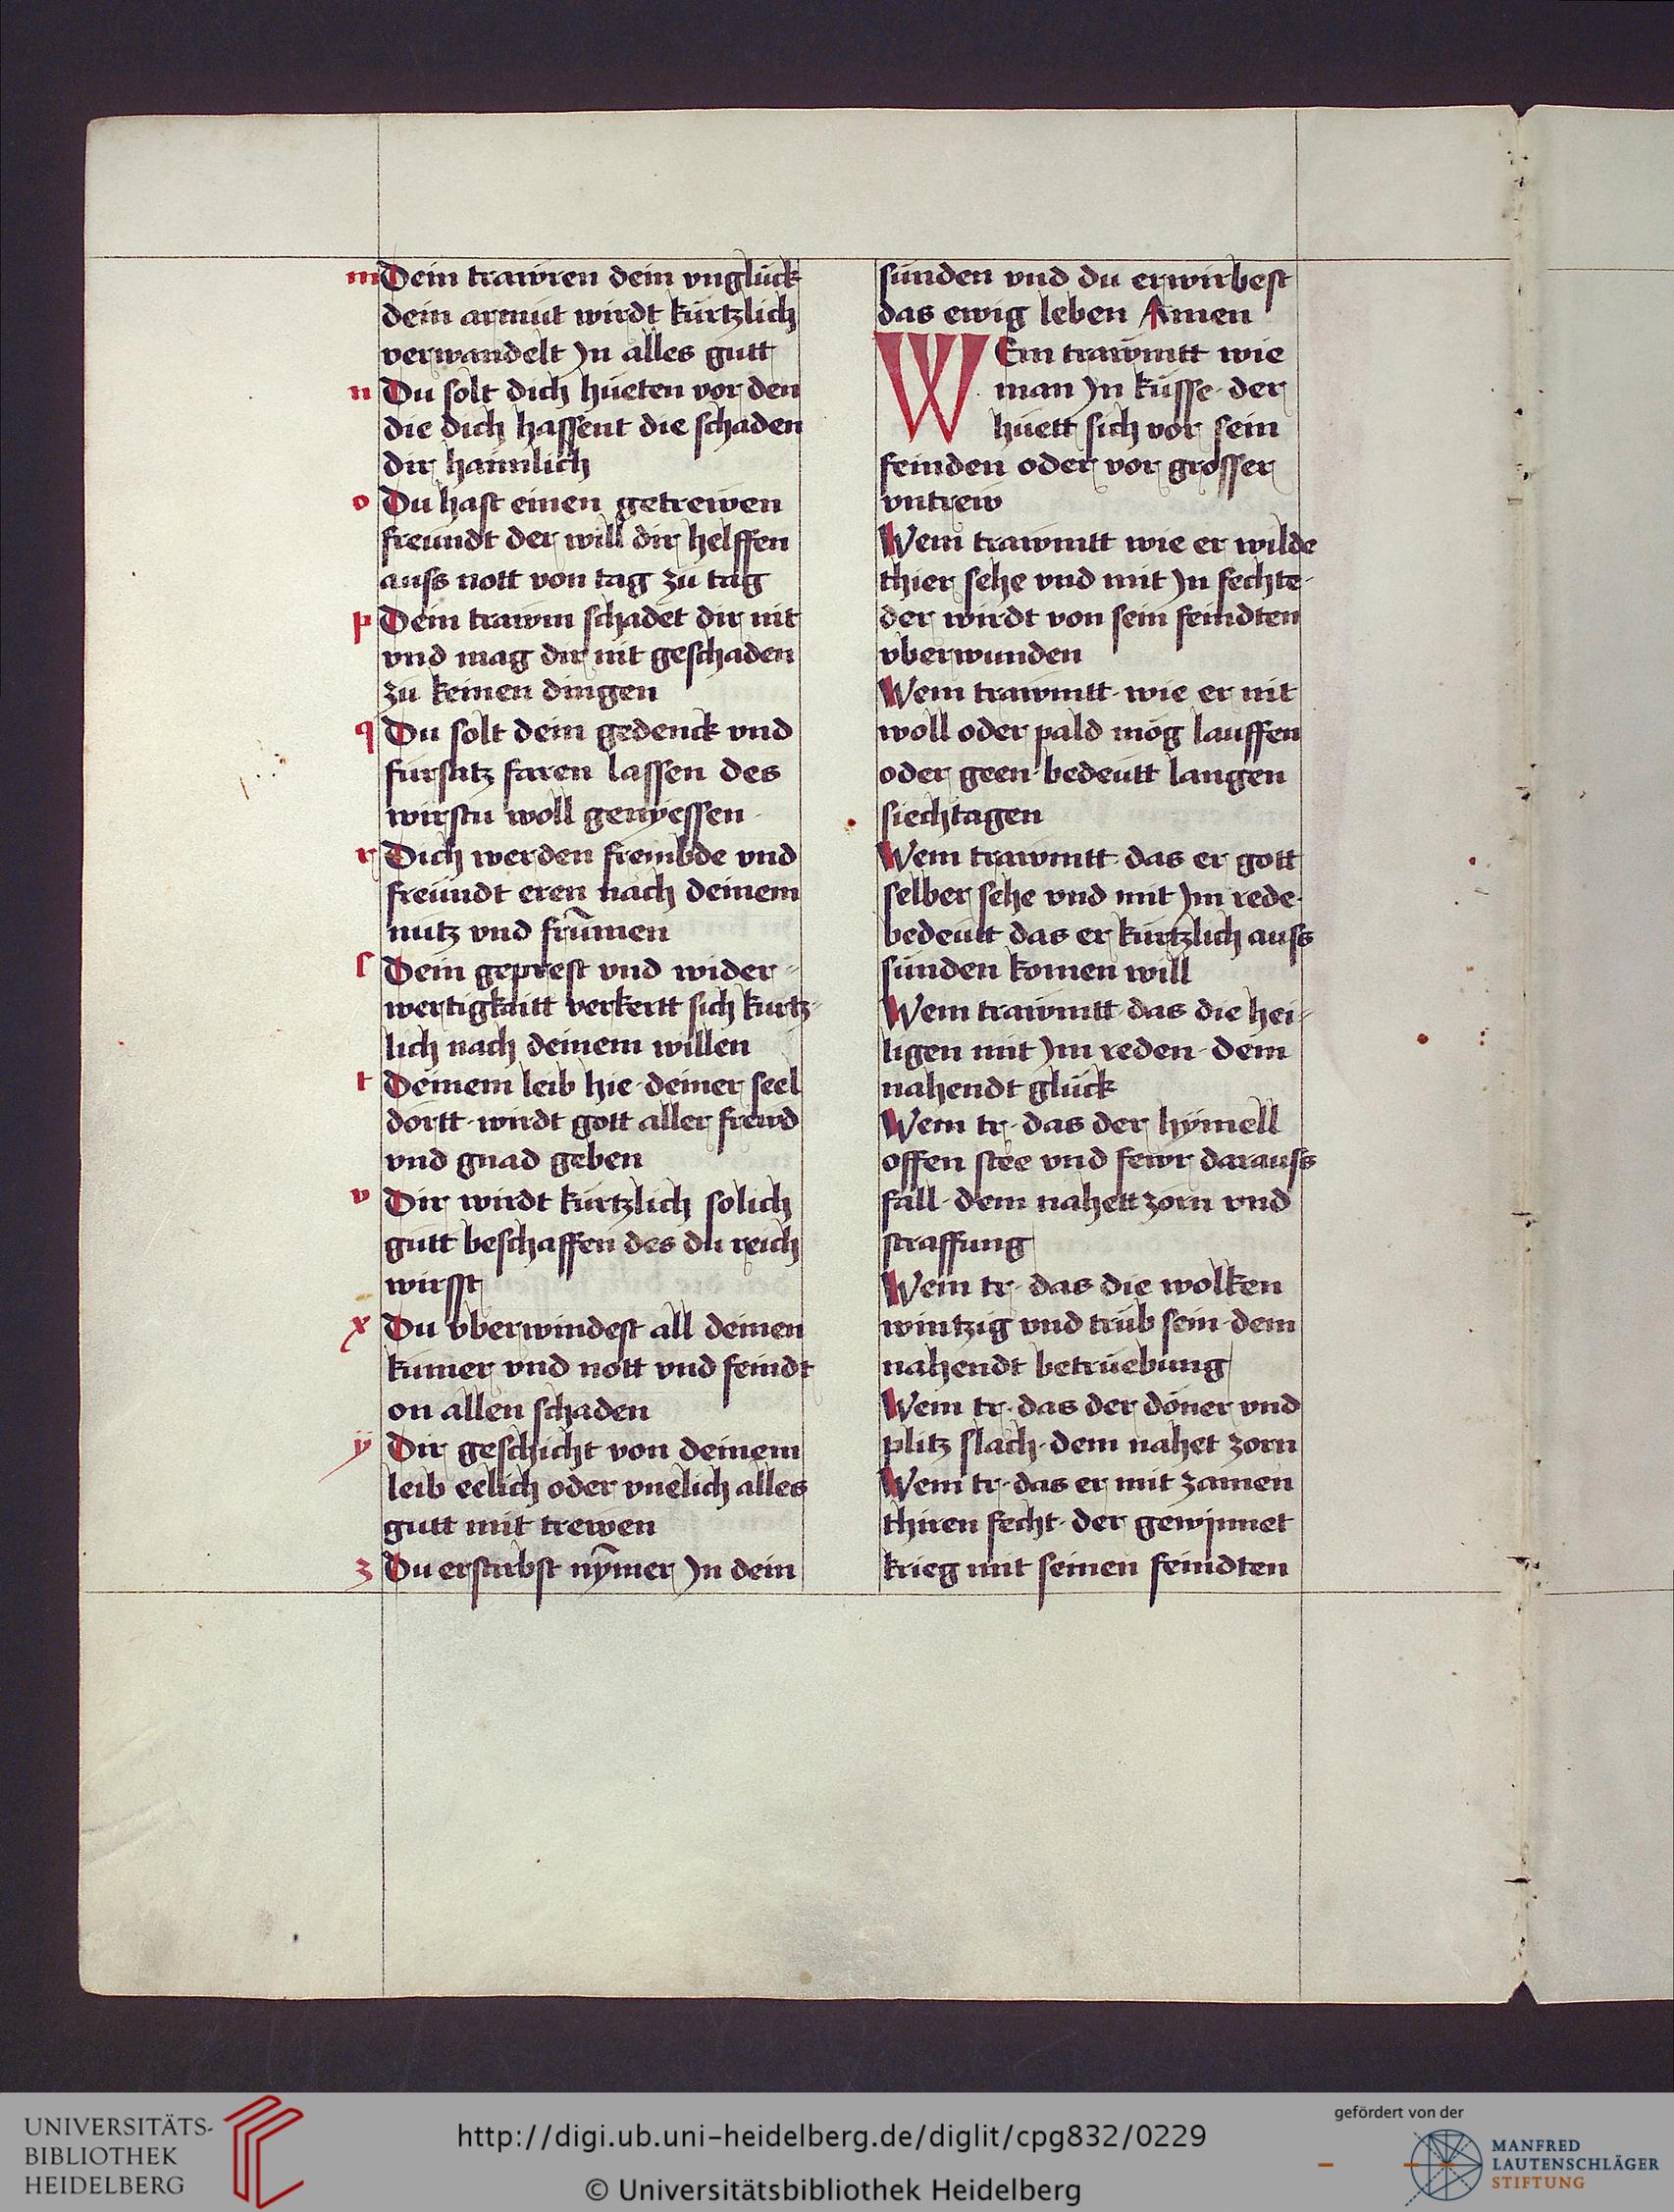 m Dein trawren dein vnglück
dein armut wirdt kürtzlich
verwandelt Jn alles gutt
n Du solt dich hüeten vor den
die dich hassent die schaden
dir haimlich
o Du hast einen getrewen
freundt der will dir helffen
auss nott von tag zu tag
p Dein trawm schadet dir nit
vnd mag dir nit geschaden
zu keinen dingen
q Du solt dein gedenck vnd
fursatz faren lassen des
wirstu woll genyessen
r Dich werden frembde vnd
freundt eren nach deinem
nutz vnd frūmen
s Dein geprest vnd wider-
wertigkaitt verkertt sich kurtz-
lich nach deinem willen
t Deinem leib hie · deiner seel
dortt · wirdt gott aller frewd
vnd gnad geben
v Dir wirdt kürtzlich solich
gutt beschaffen des du reich
wirsst
x Du vberwindest all deinen
kumer vnd nott vnd feindt
on allen schaden
ÿ Dir geschicht von deinem
leib eelich oder vnelich alles
gutt mit trewen
z Du erstirbst nȳmer Jn dein
sunden vnd du erwirbest
das ewig leben Amen
WEm trawmtt wie
man Jn küsse · der
hüett sich vor sein
feinden oder vor grosser
vntrew
Wem trawmtt wie er wilde
thier sehe vnd mit Jn fechte ·
der wirdt von sein feindten
vberwunden
Wem trawmtt · wie er nit
woll oder pald mög lauffen
oder geen · bedeutt langen
siechtagen
Wem trawmtt · das er gott
selber sehe vnd mit Jm rede ·
bedeutt das er kürtzlich auss
sünden komen will
Wem trawmtt · das die hei-
ligen mit Jm reden · dem
nahendt glück
Wem tr · das der hymell
offen stee vnd fewr darauss
fall · dem nahett zorn vnd
straffung
Wem tr · das die wolken
wintzig vnd trüb sein · dem
nahendt betrüebung
Wem tr · das der doner vnd
plitz slach · dem nahet zorn
Wem tr · das er mit zamen
thiren fecht · der gewinnet
krieg mit seinen feindten
UNIVERSITÄTS-
BIBLIOTHEK
HEIDELBERG
http://digi.ub.uni-heidelberg.de/diglit/cpg832/0229
© Universitätsbibliothek Heidelberg
gefördert von der
MANFRED
LAUTENSCHLÄGER
STIFTUNG